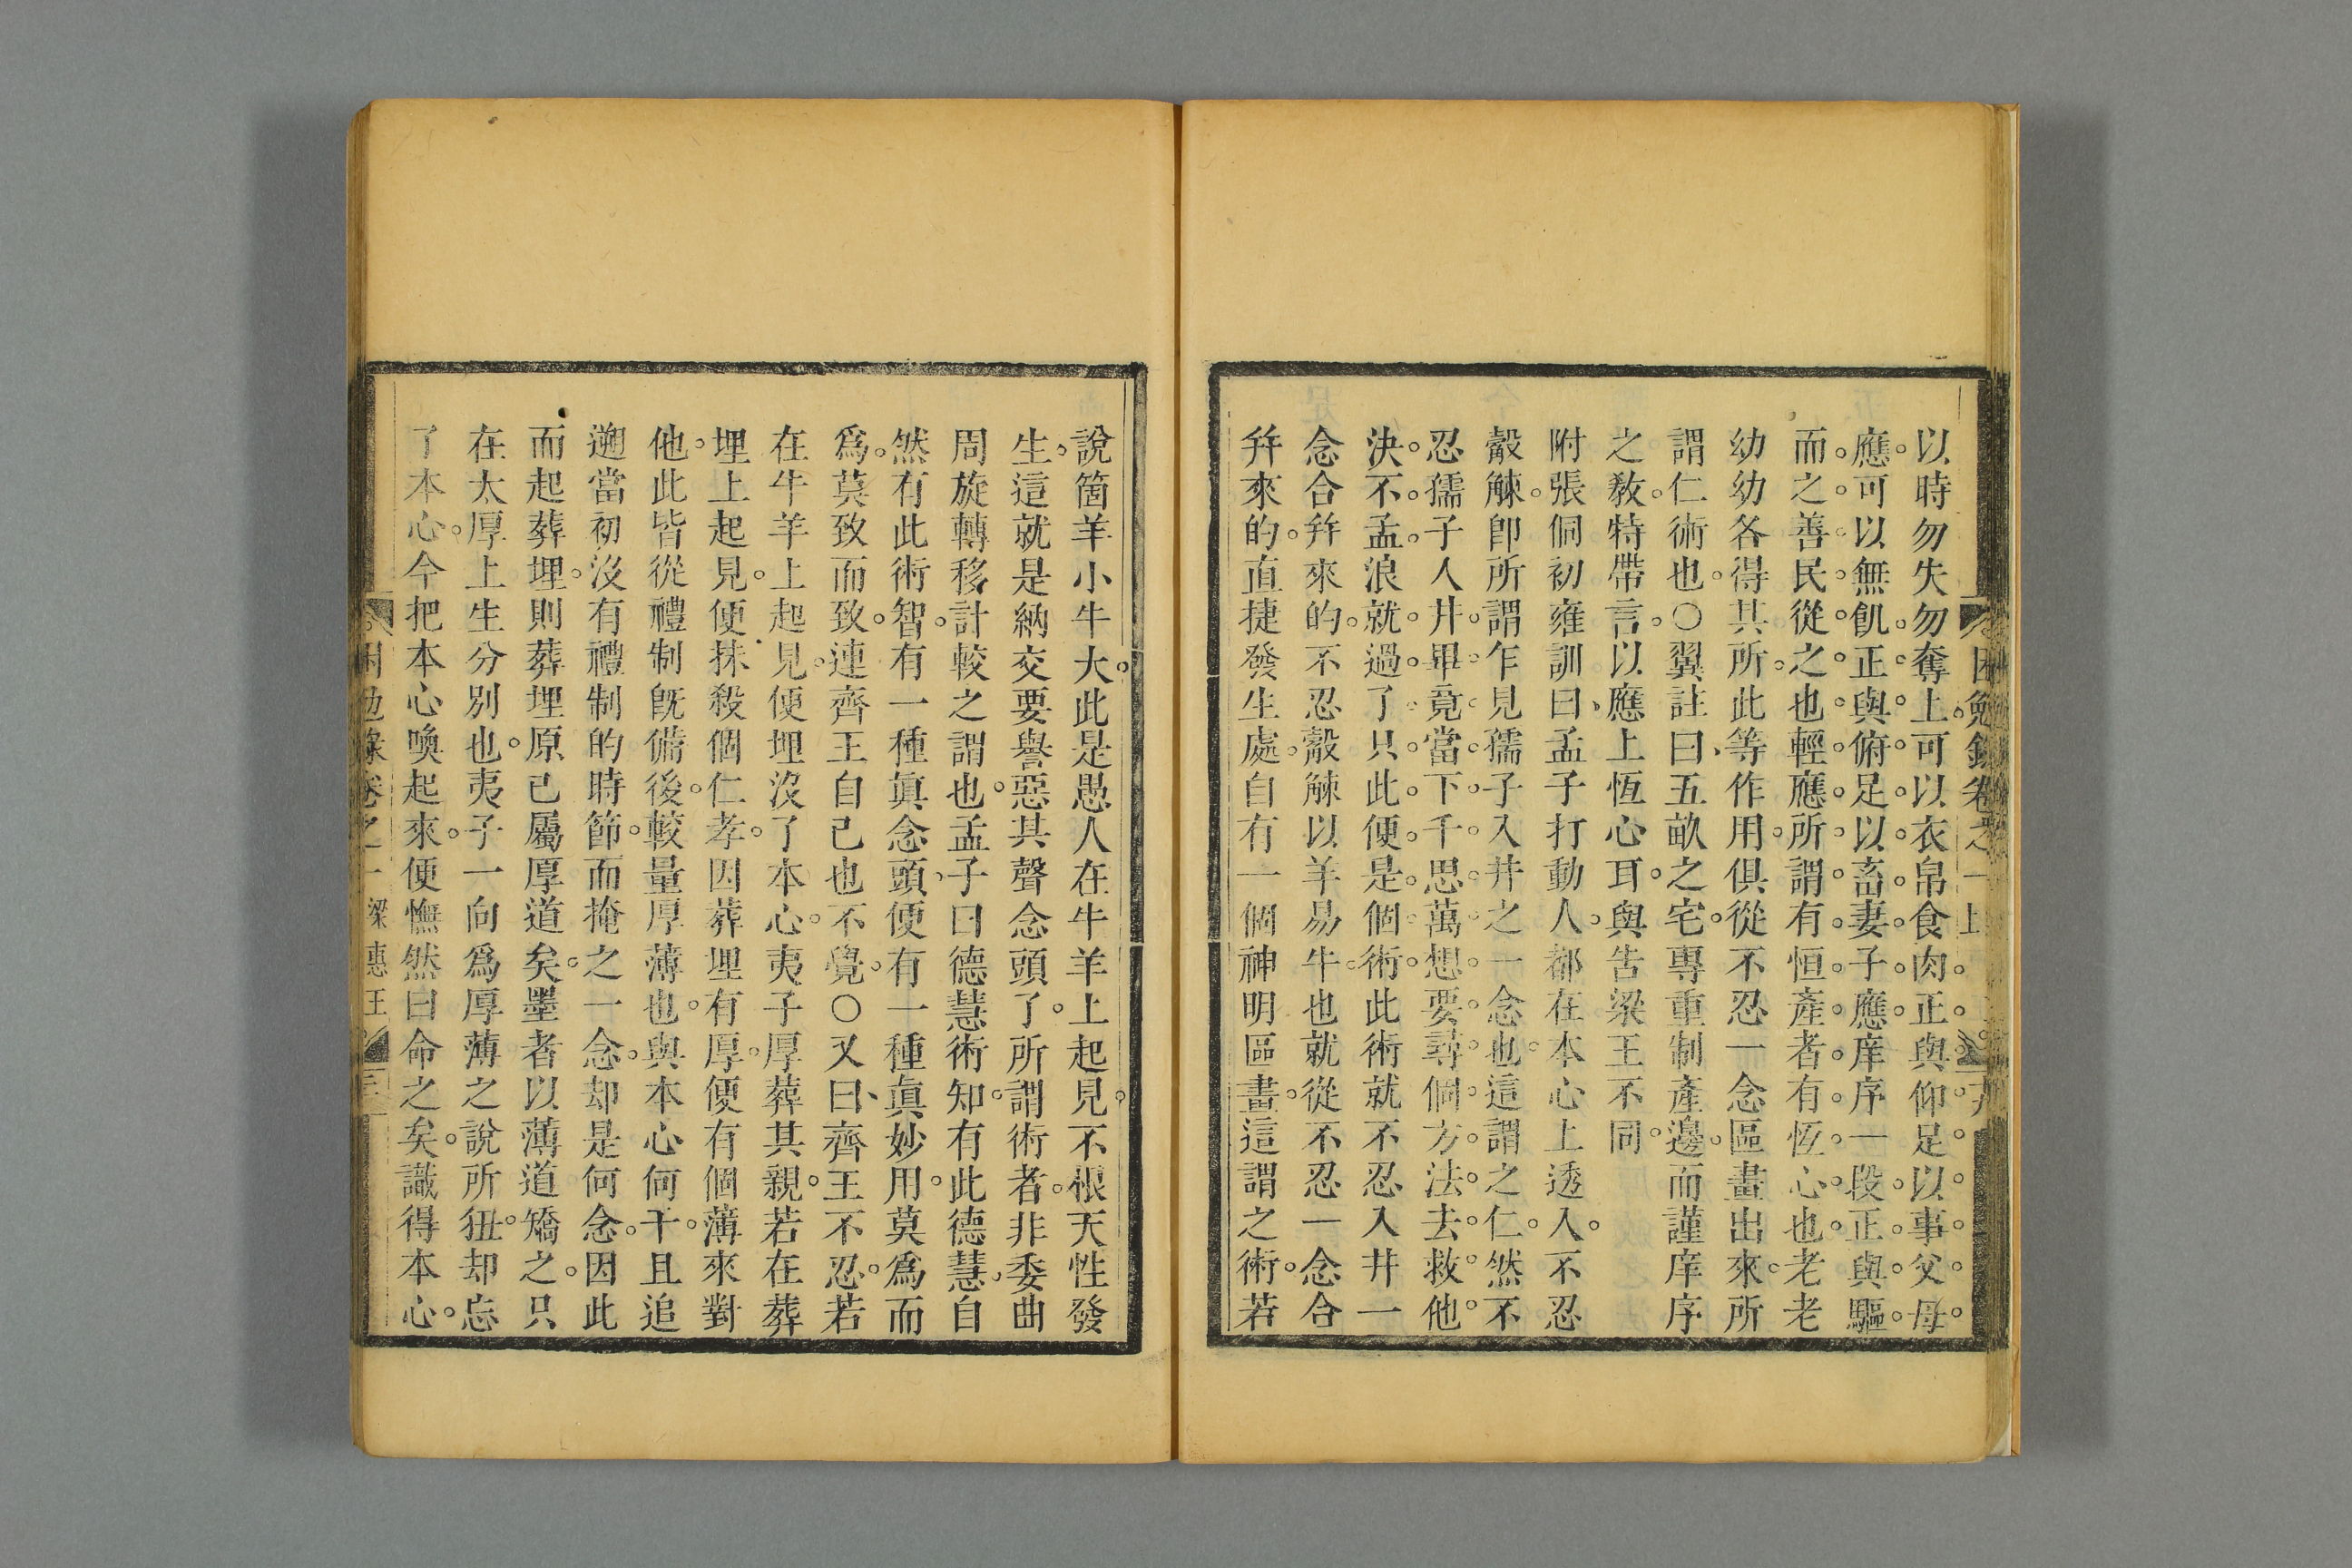 以時勿失勿奪上可以衣帛食肉正與仰足以事父母
應可以無飢正與俯足以畜妻子應庠序一段正與驅
而之善民從之也輕應所謂有恒產者有恆心也老老
幼幼各得其所此等作用俱從不忍一念區畫出來所
謂仁術也○翼註曰五畝之宅專重制產邊而謹庠序
之教特帶言以應上恆心耳與告梁王不同
附張侗初雍訓曰孟子打動人都在本心上透入不忍
觳觫卽所謂乍見孺子入井之一念也這謂之仁然不
忍孺子入井畢竟當下千思萬想要尋個方法去救他
決不孟浪就過了只此便是個術此術就不忍入井一
念合幷來的不忍觳觫以羊易牛也就從不忍一念合
幷來的直捷發生處自有一個神明區畫這謂之術若
說箇羊小牛大此是愚人在牛羊上起見不根天性發
生這就是納交要譽惡其聲念頭了所謂術者非委曲
周旋轉移計較之謂也孟子曰德慧術知有此德慧自
然有此術智有一種眞念頭便有一種眞妙用莫爲而
爲莫致而致連齊王自己也不覺○又曰齊王不忍若
在牛羊上起見便埋沒了本心夷子厚葬其親若在葬
埋上起見便抹殺個仁孝因葬埋有厚便有個薄來對
他此皆從禮制旣備後較量厚薄也與本心何干且追
遡當初沒有禮制的時節而掩之一念却是何念因此
而起葬埋則葬埋原已屬厚道矣墨者以薄道矯之只
在太厚上生分別也夷子一向爲厚薄之說所狃却忘
了本心今把本心喚起來便憮然曰命之矣識得本心
困勉錄卷之一 梁惠王